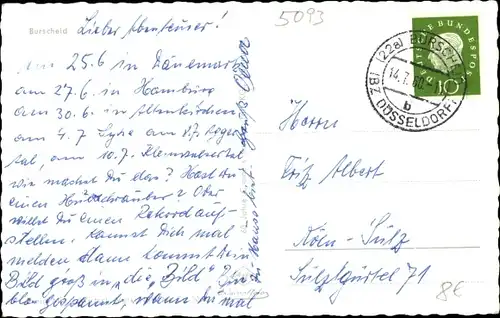 Burscheid
5093
Lieber Abenteurer!
Am 25.6 in Dänemark
am 27.6 in Hamburg
am 30.6 in Altenkirchen
am 4.7 am Agger-
tal, am 10.7. Kleinwalsertal
wie machst Du das? Hast du
einen Hubschrauber? Oder
willst du einen Rekord auf-
stellen. Kannst Dich mal
melden dann kommt dein
Bild groß in "die Bild" Bin
gespannt, wann du mal
zu Hause bist
(22a) BURSCHEID
14.7.60
b
(BZ DÜSSELDORF)
DEUTSCHE BUNDESPOST
10
Herrn
Fritz Albert
Köln-Sülz
Sülzgürtel 71
8€